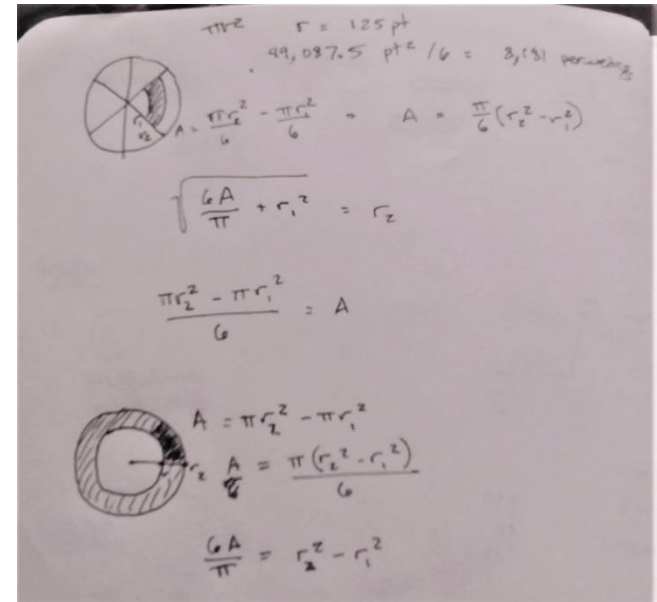 πr² r = 125 pt
49,087.5 pt² /6 = 8,181 per wedge
r₁
r₂
A = πr₂²/6 - πr₁²/6 = A = π/6 (r₂² - r₁²)
√(6A/π + r₁²) = r₂
(πr₂² - πr₁²)/6 = A
A = πr₂² - πr₁²
r₂ A/6 = π(r₂² - r₁²)/6
6A/π = r₂² - r₁²